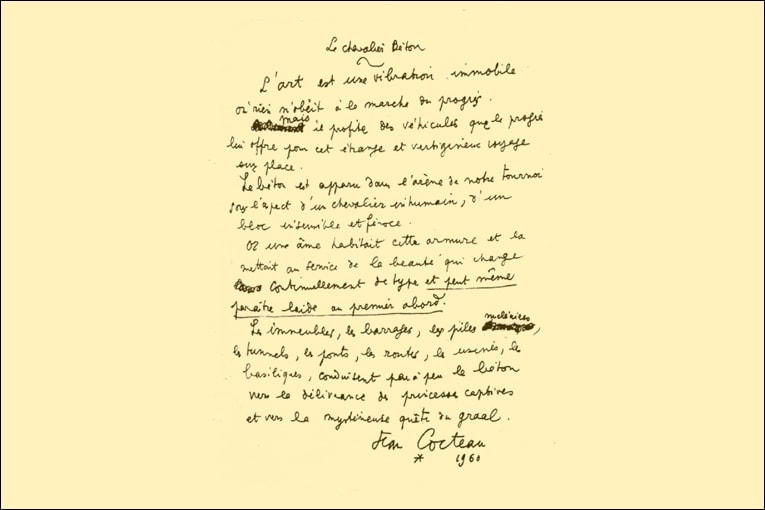 Le chevalier Béton
L'art est une vibration immobile
où rien n'obéit à la marche du progrès.
mais
il profite des véhicules que le progrès
lui offre pour cet étrange et vertigineux voyage
sur place.
Le béton est apparu dans l'arène de notre tournoi
sous l'aspect d'un chevalier inhumain, d'un
bloc insensible et féroce.
Or une âme habitait cette armure et la
mettait au service de la beauté qui change
continuellement de type et peut même
paraître laide au premier abord.
Les immeubles, les barrages, les piles nucléaires,
les tunnels, les ponts, les routes, les usines, les
basiliques, conduisent peu à peu le béton
vers la délivrance des princesses captives
et vers la mystérieuse quête du graal.
Jean Cocteau
* 1960